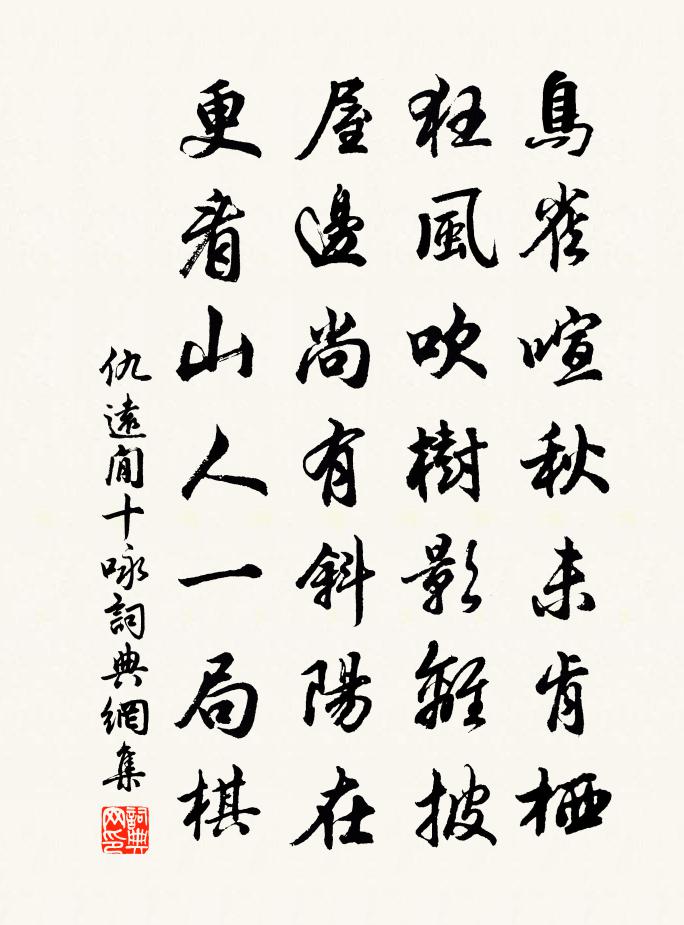 鳥雀喧秋未肯栖
狂風吹樹影離披
屋邊尚有斜陽在
更看山人一局棋
仇遠閒十咏詞典網集
詞典
网印